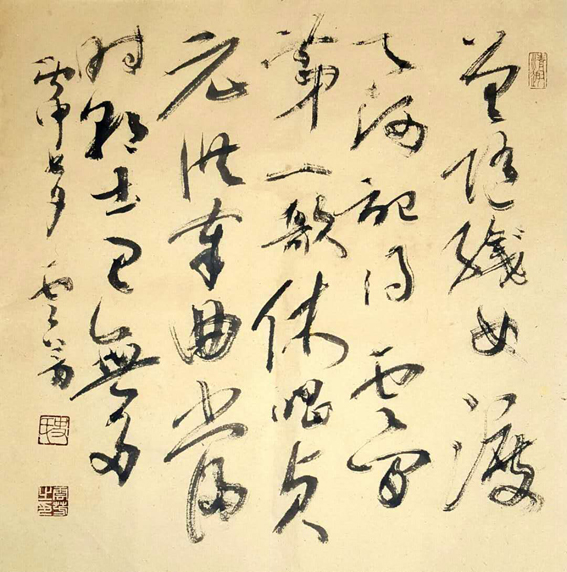 曾隨織女渡
天河記得雲間
第一歌休唱貞
元供奉曲當
時朝士已無多
申七夕 雲芳